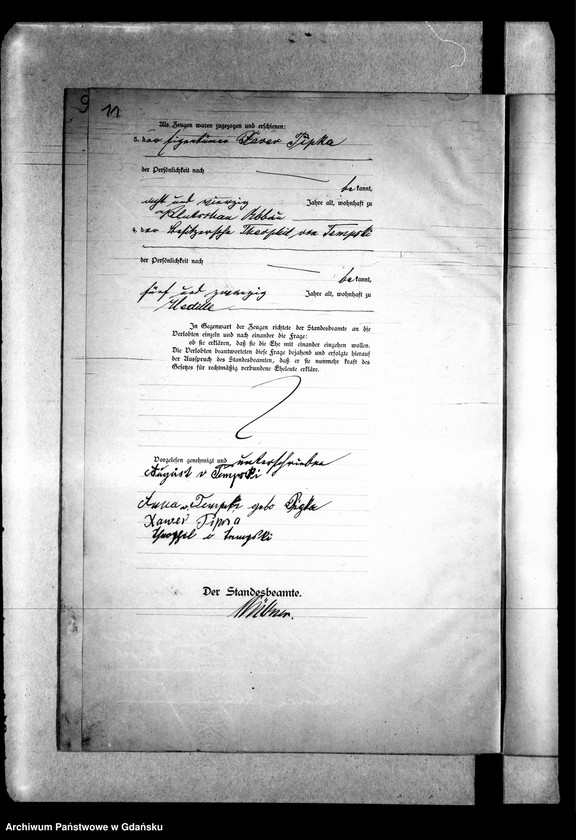 9 11
Als Zeugen waren zugezogen und erschienen:
3. der Eigentümer Xaver Pipka
der Persönlichkeit nach
bekannt,
acht und vierzig Jahre alt, wohnhaft zu
4. der Besitzersohn Theophil von Tempski
der Persönlichkeit nach
bekannt,
fünf und zwanzig Jahre alt, wohnhaft zu
In Gegenwart der Zeugen richtete der Standesbeamte an die
Verlobten einzeln und nach einander die Frage:
ob sie erklären, daß sie die Ehe mit einander eingehen wollen.
Die Verlobten beantworteten diese Frage bejahend und erfolgte hierauf
der Ausspruch des Standesbeamten, daß er sie nunmehr kraft des
Gesetzes für rechtmäßig verbundene Eheleute erkläre.
Vorgelesen, genehmigt und unterschrieben
August v Tempski
Anna v. Tempski geb
Xawer
v Tempski
Der Standesbeamte.
Archiwum Państwowe w Gdańsku